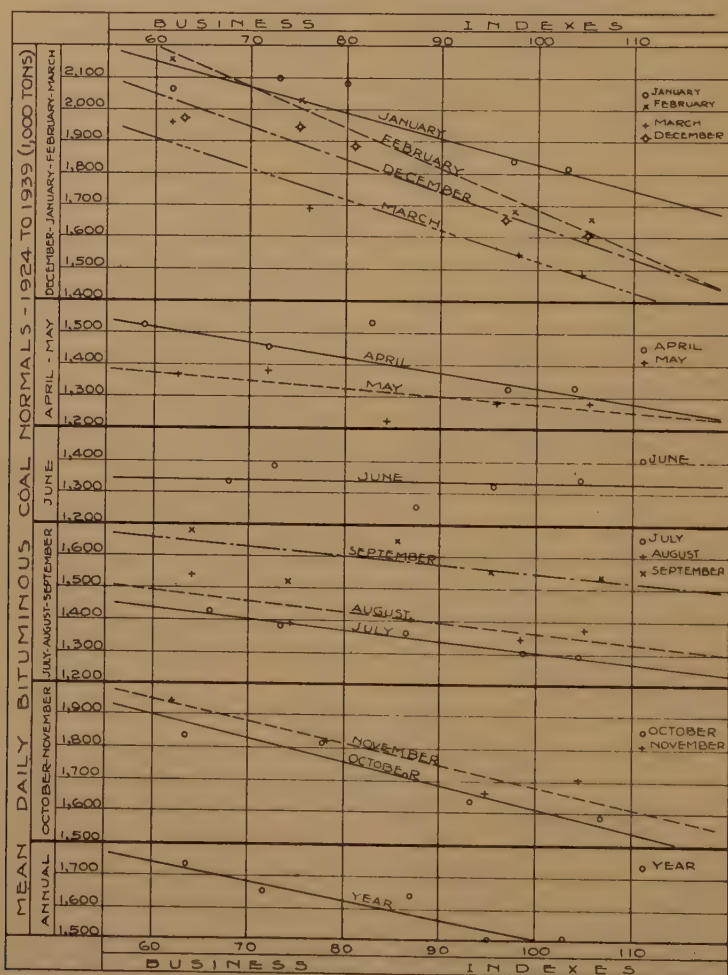 BUSINESS INDEXES
60 70 80 90 100 110
MEAN DAILY BITUMINOUS COAL NORMALS - 1924 TO 1939 (1,000 TONS)
DECEMBER-JANUARY-FEBRUARY-MARCH
2,100
2,000
1,900
1,800
1,700
1,600
1,500
1,400
JANUARY
FEBRUARY
DECEMBER
MARCH
JANUARY
FEBRUARY
MARCH
DECEMBER
APRIL - MAY
1,500
1,400
1,300
1,200
APRIL
MAY
APRIL
MAY
JUNE
1,400
1,300
1,200
JUNE
JUNE
JULY-AUGUST-SEPTEMBER
1,600
1,500
1,400
1,300
1,200
SEPTEMBER
AUGUST
JULY
JULY
AUGUST
SEPTEMBER
OCTOBER-NOVEMBER
1,900
1,800
1,700
1,600
1,500
NOVEMBER
OCTOBER
OCTOBER
NOVEMBER
ANNUAL
1,700
1,600
1,500
YEAR
YEAR
60 70 80 90 100 110
BUSINESS INDEXES